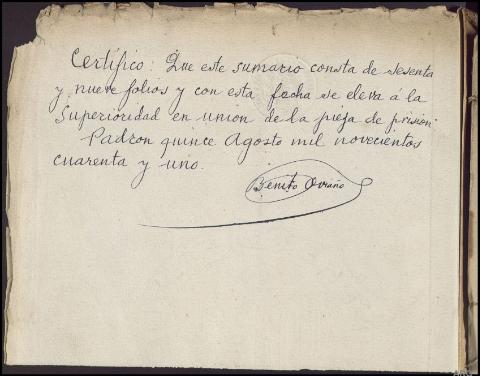 Certifico: Que este sumario consta de sesenta
y nueve folios y con esta fecha se eleva á la
Superioridad en union de la pieza de prision.
Padron quince Agosto mil novecientos
cuarenta y uno.
Benito